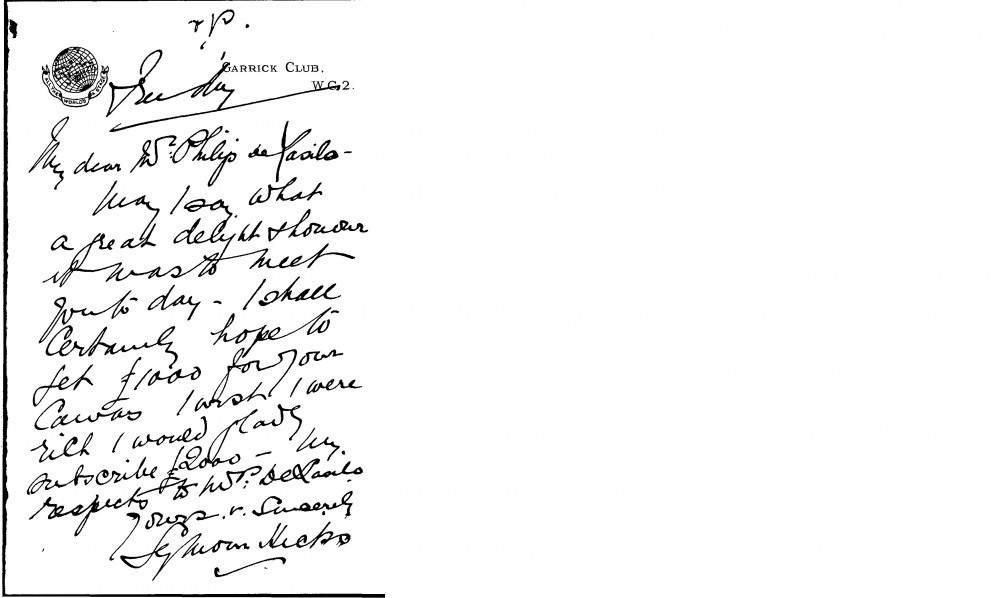 GARRICK CLUB,
W.C.2.
ALL THE WORLD'S A STAGE
My dear Mr. Philip de Laszlo -
May I say what
a great delight & honour
it was to meet
you to day - I shall
Certainly hope to
get £1000 for your
Canvas I wish I were
rich I would gladly
subscribe £2000 - My
respects to Mrs. De Laszlo
Yours v. Sincerely
Seymour Hicks